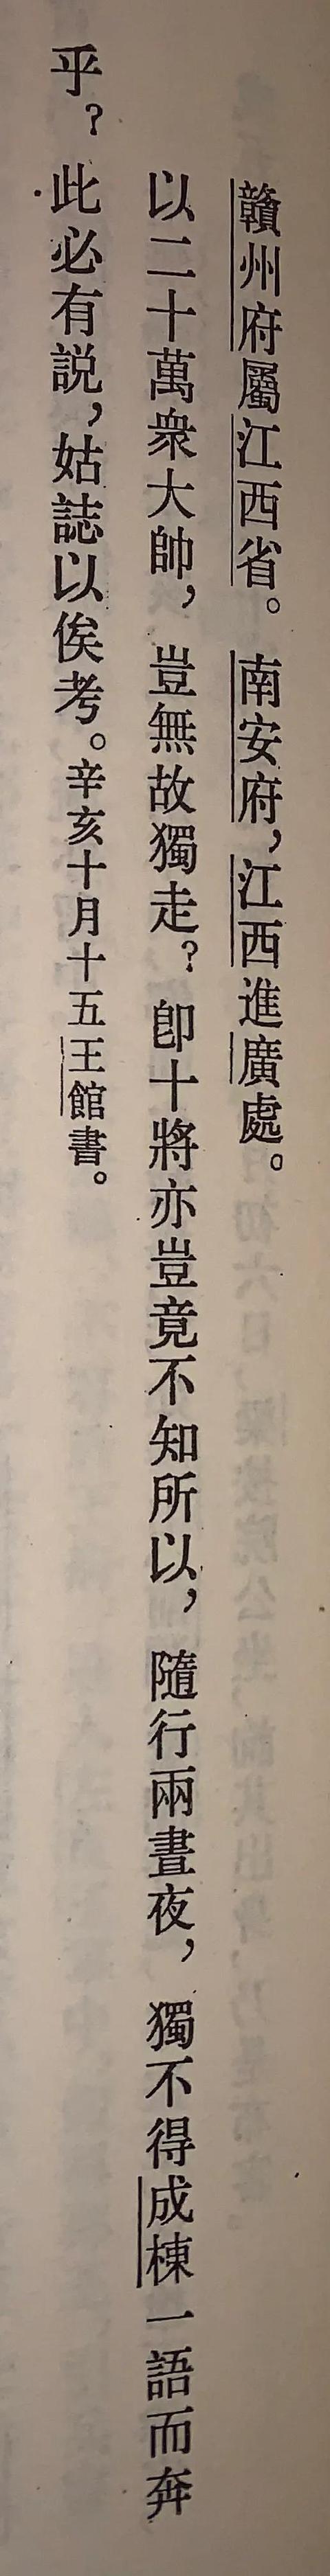 贛州府屬江西省。南安府，江西進廣處。
以二十萬衆大帥，豈無故獨走？卽十將亦豈竟不知所以，隨行兩晝夜，獨不得成棟一語而奔
乎？此必有説，姑誌以俟考。辛亥十月十五王館書。